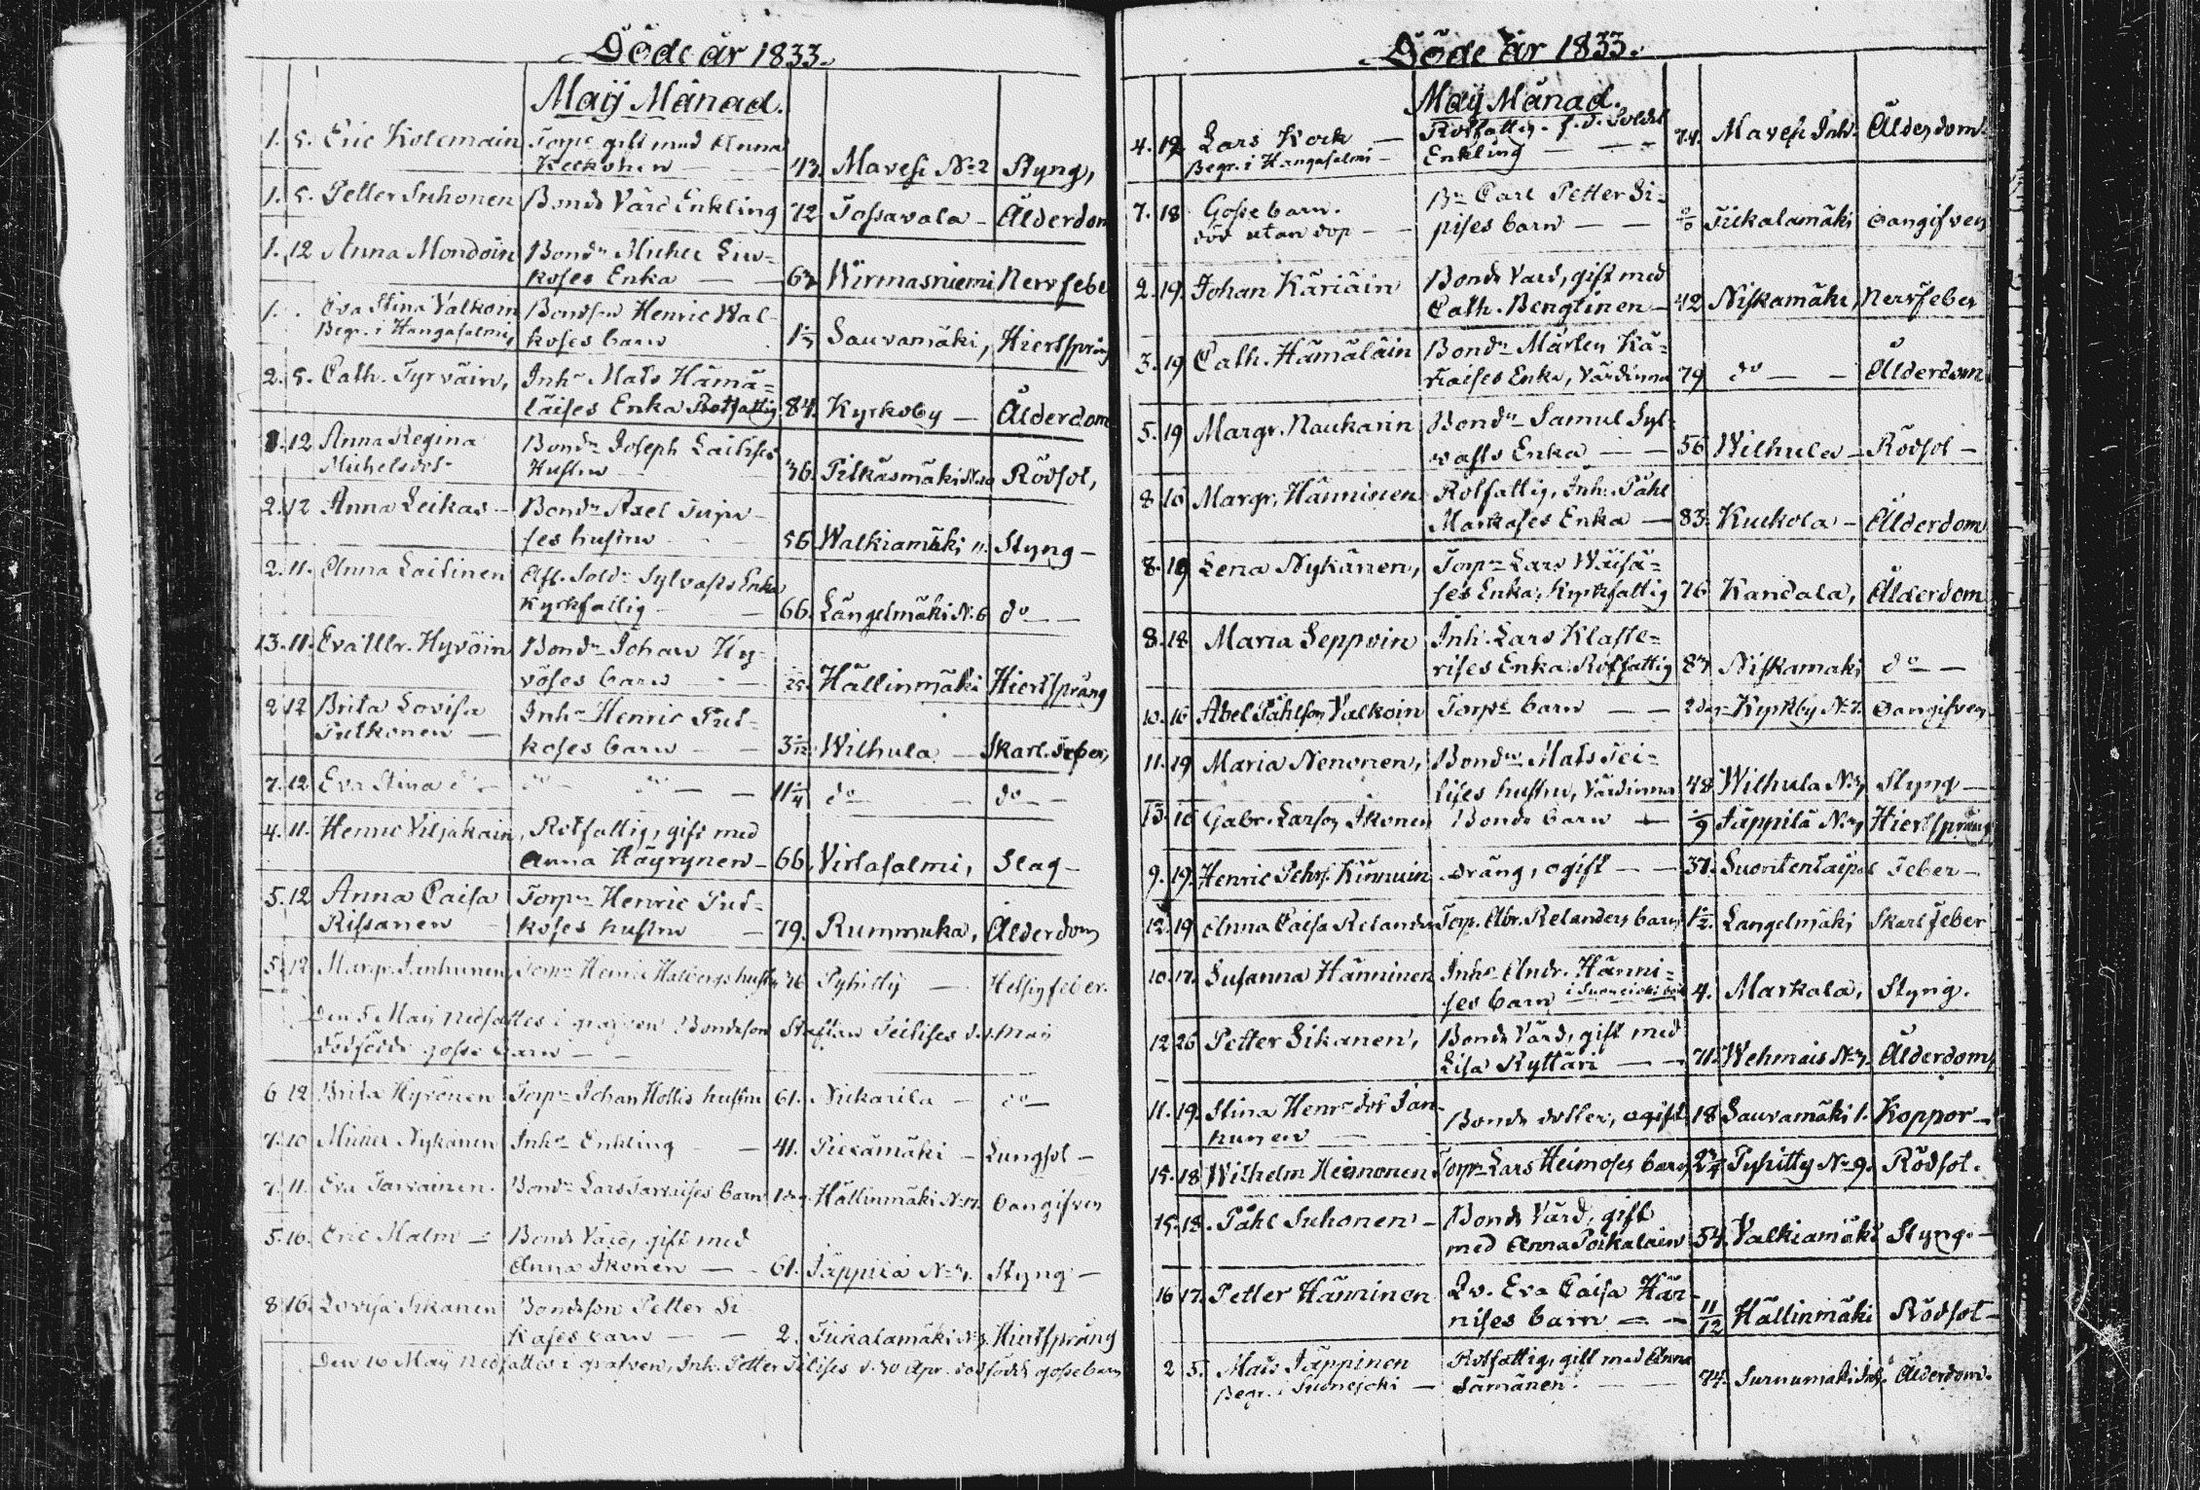 Döde år 1833.
Maÿ Månad.
1. 5. Eric Kolemain Torpe gift med Anna
Keckonen — 43. Mavesi No 2 Styng,
1. 5. Petter Suhonen Bonds Värd Enkling 72 Tossavala — Ålderdom
1. 12 Anna Mondoin Bondn Michel Liu-
koses Enka — 63 Wirmasniemi Nervfeber
1. Eva Stina Valkoin Bondson Henric Wal-
Begr. i Hangasalmi, koses barn Sauvamäki, Hiertsprång
2. 5. Cath. Tyrväin, Inhs Mats Hämä-
läises Enka Rotfattig 84. Kyrkoby — Ålderdom
12 Anna Regina Bondn Joseph Laitises
Michelsdotr Hustru 36. Pitkäsmäki Rödsot,
2. 12 Anna Leikas — Bondn Axel
ses hustru 56 Walkiamäki Styng —
2. 11. Anna Laitinen Afl. Soldn Sylvasts Enka
Kyrkfattig — 66. Längelmäki N. 6 do —
13. 11. Eva Ulr. Hyvöin Bondn Johan Hy-
vöses barn — Hällinmäki Hiertsprång
2 12 Brita Lovisa Inhs Henric Put-
Putkonen — koses barn — Wilhula — Skarl. feber,
7. 12 Eva Stina do — do — do — do —
4. 11. Henric Viljakain, Rotfattig, gift med
Anna Häyrynen — 66, Virtasalmi, Slag —
5. 12 Anna Caisa Torpn Henric Put-
Rissanen — koses hustru — 79. Rummuka, Ålderdom
5. 12 Margr. Janhunen Torpn Henric Halbergs hustru 36 Pyhitty — Hetsigfeber.
Den 5 Maÿ nedsattes i grafven Bondeson Staffan Teitises d. 1. Maÿ
dödfödde gosse barn —
6 12 Brita Hyvönen Torpn Johan Hottis hustru 61. Nickarila — do —
7. 10 Michel Nykänen Inhs Enkling — 41. PieSämäki — Lungsot —
7. 11. Eva Tarvainen. Bondn Lars Tarvaises barn Hällinmäki N. 17. Oangifven
5. 16. Eric Malm — Bonds Värd, gift med
Anna Ikonen — 61. Jäppilä Styng —
8 16. Lovisa Sikanen Bondeson Petter Si-
kases barn — 2. Tihkalamäki Hiertsprång
Den 16 Maÿ nedsattes i grafven, Inh. Petter Teitises d. 30 Apr. dödfödde gossebarn
Döde år 1833.
Maÿ Månad.
4. 12 Lars Kock — Rotfattig. f. d. Soldat
Begr. i Hangasalmi — Enkling — 74. Mavesi Inh. Ålderdom.
7. 18 Gosse barn. Bn Carl Petter Si-
död utan dop — pises barn — Tihkalamäki Oangifven
2. 19. Johan Käriäin Bonds Värd, gift med
Cath. Bengtinen — 42 Niskamäki, Nervfeber
3. 19 Cath. Hämäläin Bondn Mårten Kä-
riäises Enka, Värdinna 79 do — Ålderdom
5. 19 Margr. Naukarin Bondn Samuel Syl-
vasts Enka — 56 Wilhula — Rödsot —
8 16 Margr. Hänninen Rotfattig, Inh. Påhl
Markoses Enka — 83. Kuckola — Ålderdom
8. 19 Lena Nykänen, Torpn Lars Wäisä-
ses Enka, Kyrkfattig 76 Kandala, Ålderdom
8. 18 Maria Seppoin Inh. Lars Klaste-
rises Enka. Rotfattig 87. Niskamäki do —
10. 16 Abel Påhlson Valkoin Torps barn — 2 dagr Kyrkby Oangifven
11. 19 Maria Nenonen, Bondn Mats Tei-
tises hustru, Värdinna 48 Wilhula Styng —
13. 16 Gabr. Larson Ikonen Bonds barn — Jäppilä Hiertsprång
9. 19. Henric Pehrs. Kinnuin dräng, ogift — 31. Suontentaipal Feber —
12. 19 Anna Caisa Relander Torp. Abr. Relanders barn Längelmäki Skarl feber
10. 17. Susanna Hänninen Inhs Andr. Hänni-
ses barn i Suonejoki 4. Markala, Styng.
12 26 Petter Sikanen, Bonds Värd, gift med
Lisa Ryttäri — 71. Wehmais Ålderdom
11. 19. Stina Henrsdotr Jan- Bonds dotter, ogift 18 Sauvamäki 1. Koppor —
hunen —
15. 18 Wilhelm Heimonen Torpn Lars Heimoses barn Pyhitty No 9. Rödsot.
15. 18. Påhl Suhonen — Bonds Värd, gift
med Anna Poikalain 54. Valkiamäki Styng. —
16 17. Petter Hänninen Qv. Eva Caisa Hän-
nises barn — 11/12 Hällinmäki Rödsot —
2 5. Mats Jäppinen Rotfattig, gift med Anna
Begr. i Suonejoki — Sämänen. — 74. Surnumäki Inh. Ålderdom.